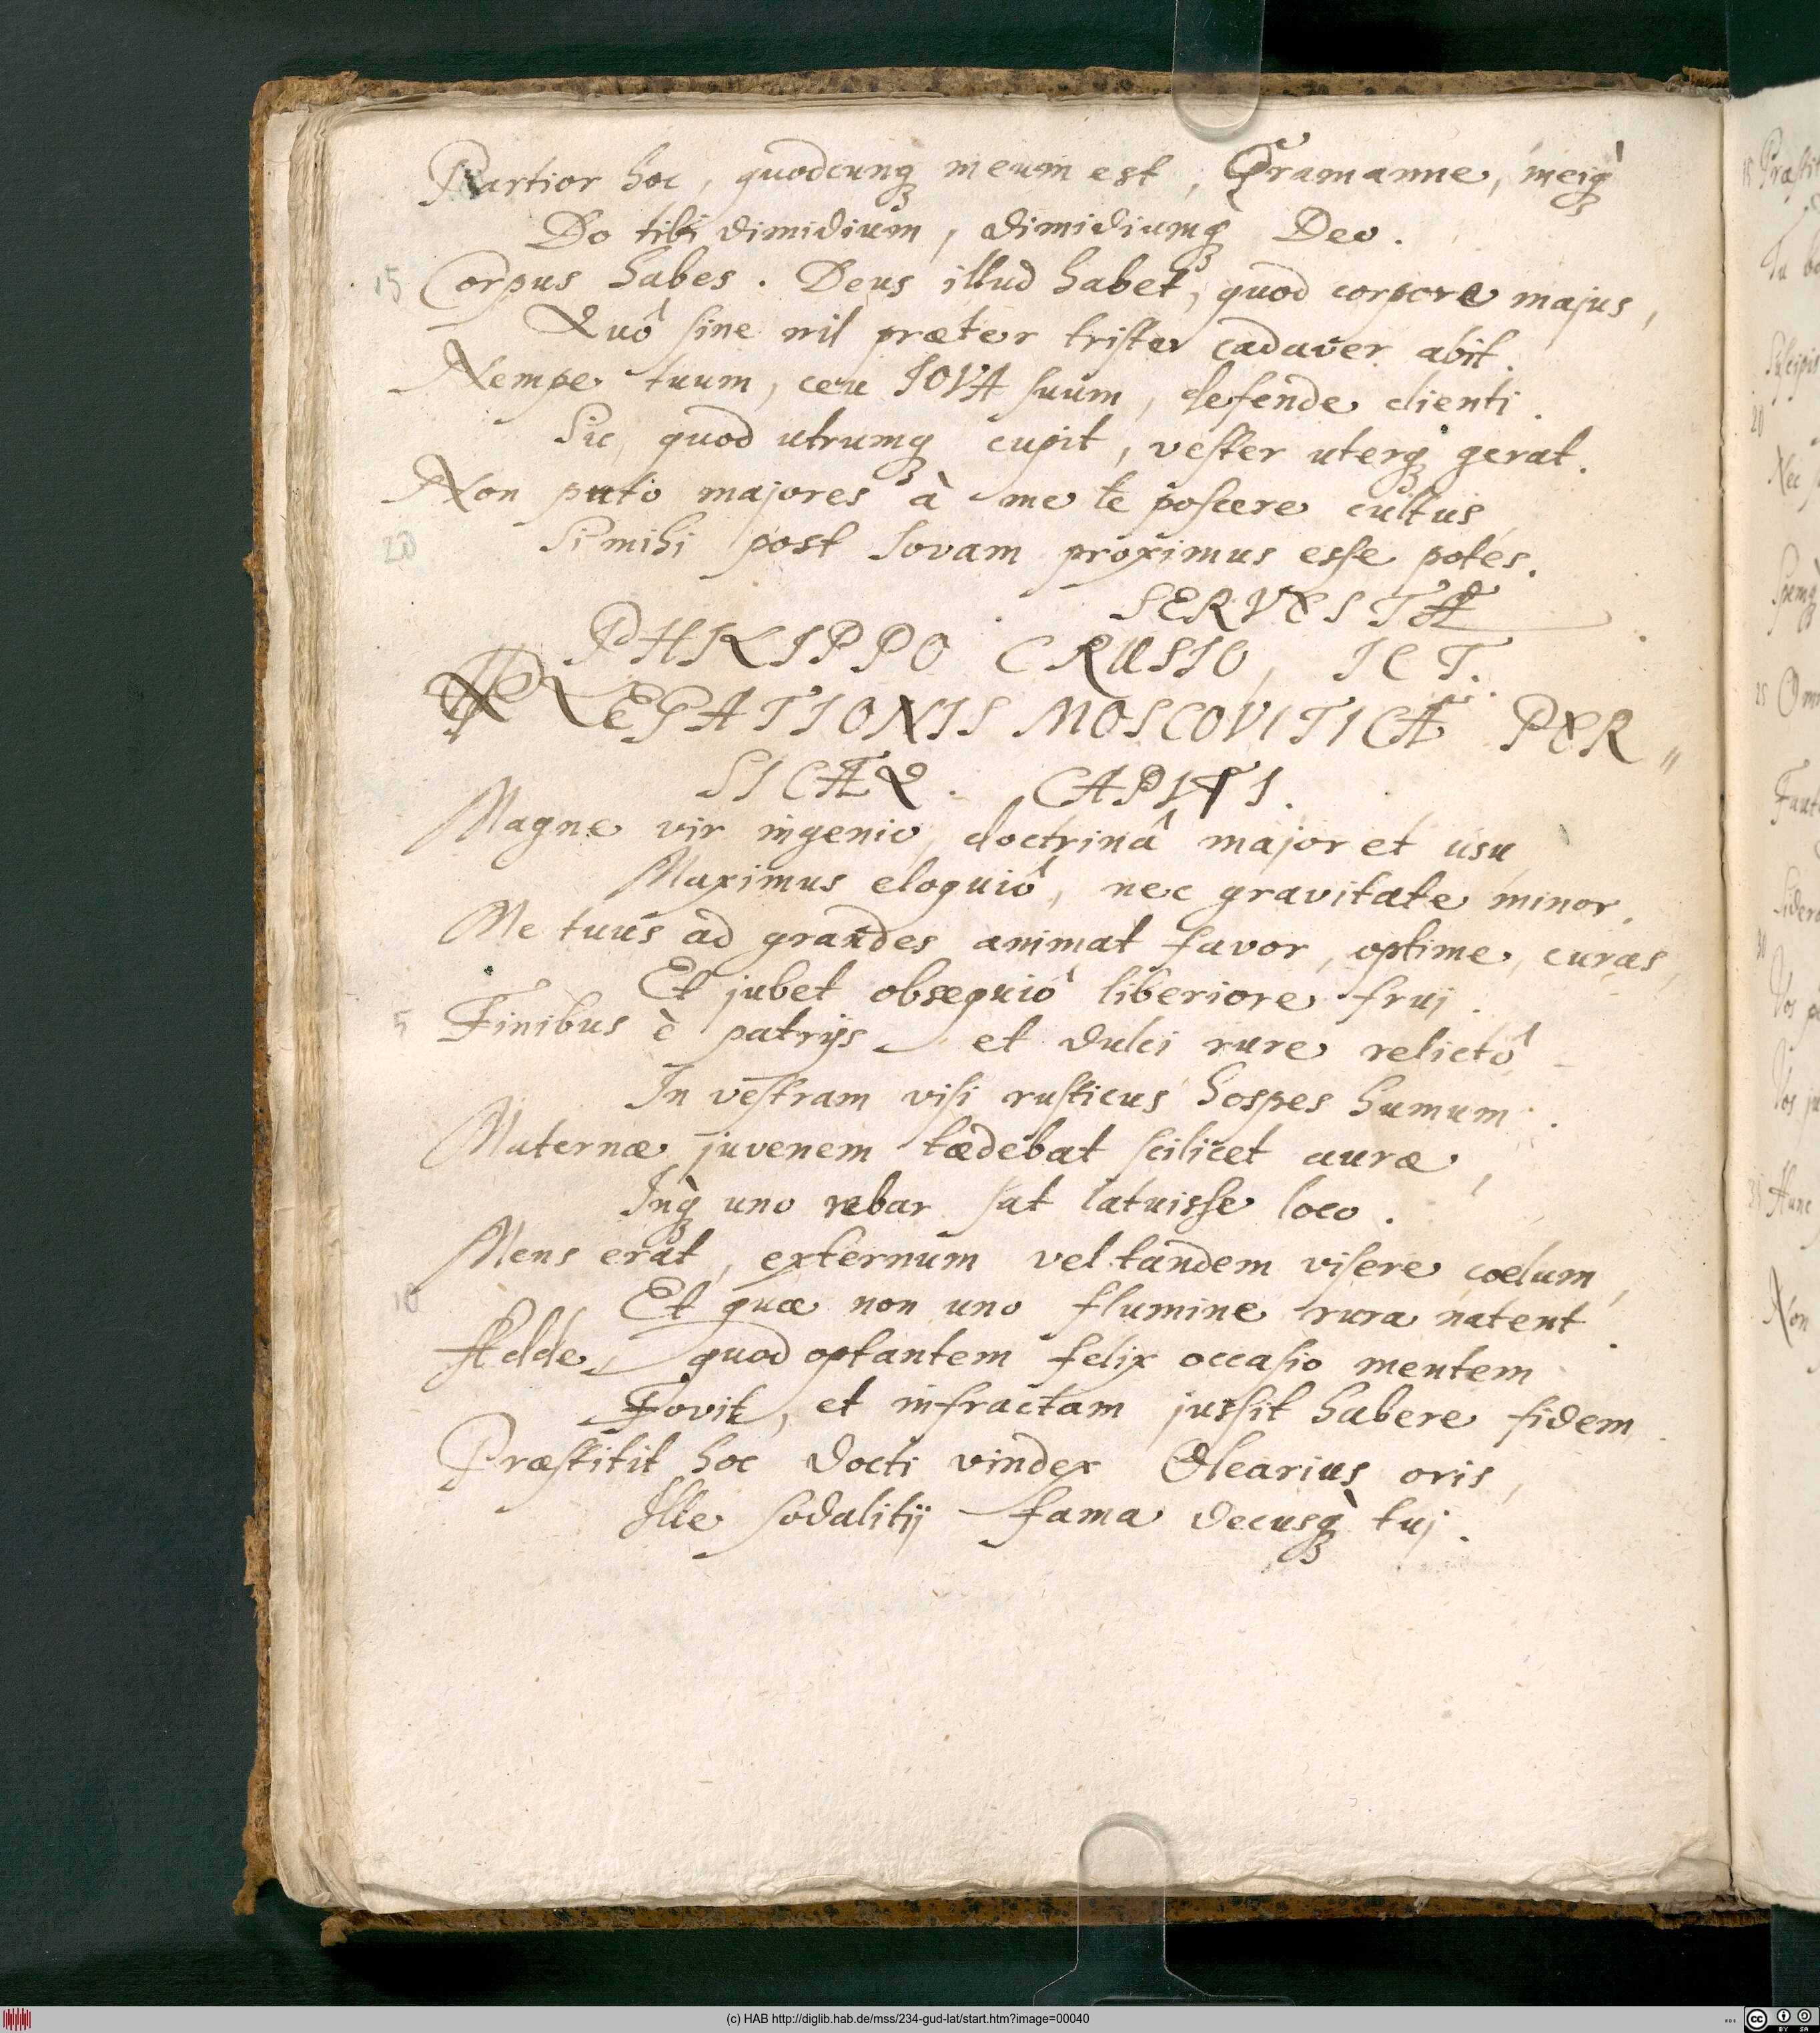 Partior hoc, quodcunq; meum est, Gramanne, meiq;̀
Do tibi dimidium, dimidiumq; Deo.
15 Corpus habes. Deus illud habet, quod corpore majus,
Quô sine nil præter triste cadaver abit.
Nempe tuum, ceu IOVA suum, defende clienti.
Sic, quod utrumq; cupit, vester uterq; gerat.
Non puto majores à me te poscere cultus,
20 Si mihi post Iovam proximus esse potes.
SERVESTÆ
PHILIPPO CRUSIO, ICT.
LEGATIONIS MOSCOVITICÆ PER〃
SICÆQ. CAPITI.
Magne vir ingenio, doctrinâ major et usu,
Maximus eloquiô, nec gravitate minor.
Me tuus ad grandes animat favor, optime, curas,
Et jubet obsequiô liberiore fruj.
5 Finibus è patrijs et dulci rure relictô
In vestram visi rusticus hospes humum.
Maternæ juvenem tædebat scilicet auræ,
Inq;̀ uno rebar sat latuisse loco.
Mens erat, externum vel tandem visere coelum,
10 Et quæ non uno flumine rura natent.
Adde, quod optantem felix occasio mentem
Fovit, et infractam jussit habere fidem.
Præstitit hoc docti vindex Olearius oris,
Ille sodalitij fama decusq;̀ tuj.
15 Præstit
Tu
20
Nec
Spemq;
25 Omn
30
Vos
Vos
Hunc
Non
(c) HAB http://diglib.hab.de/mss/234-gud-lat/start.htm?image=00040
cc BY SA